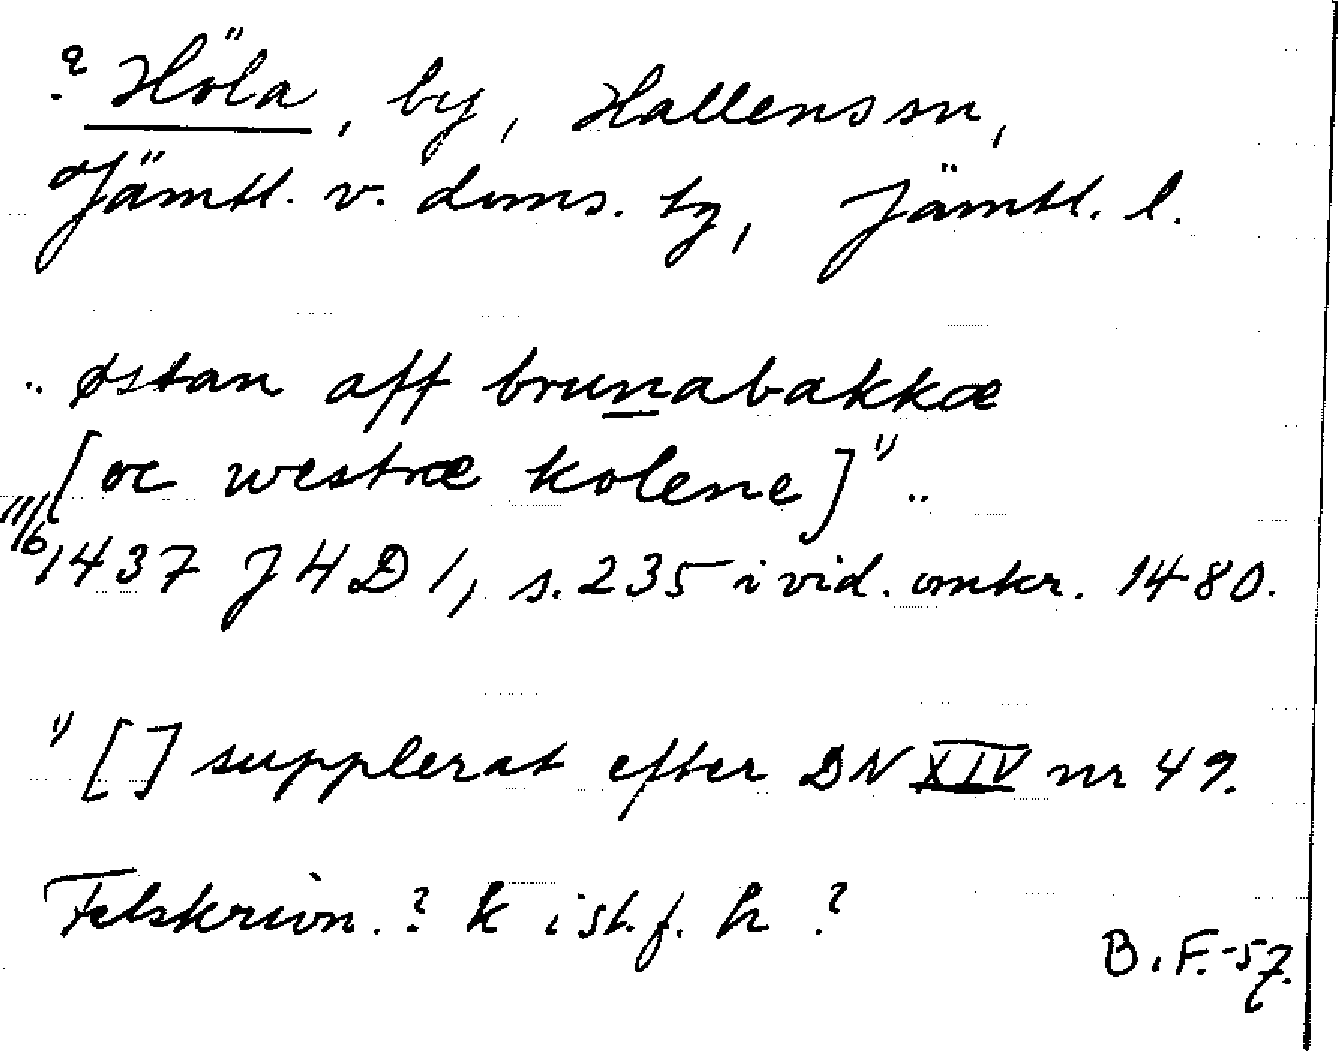 ? Höla, by, Hallens sn,
Jämtl. v. doms. tg, Jämtl. l.
.. østan aff brunabakkæ
[oc westræ kolene]¹⁾ ..
11/6 1437 JHD 1, s. 235 i vid. omkr. 1480.
¹⁾ [ ] supplerat efter DN XIV nr 49.
Felskrivn.? k i st. f. h ?
B.F.-57.